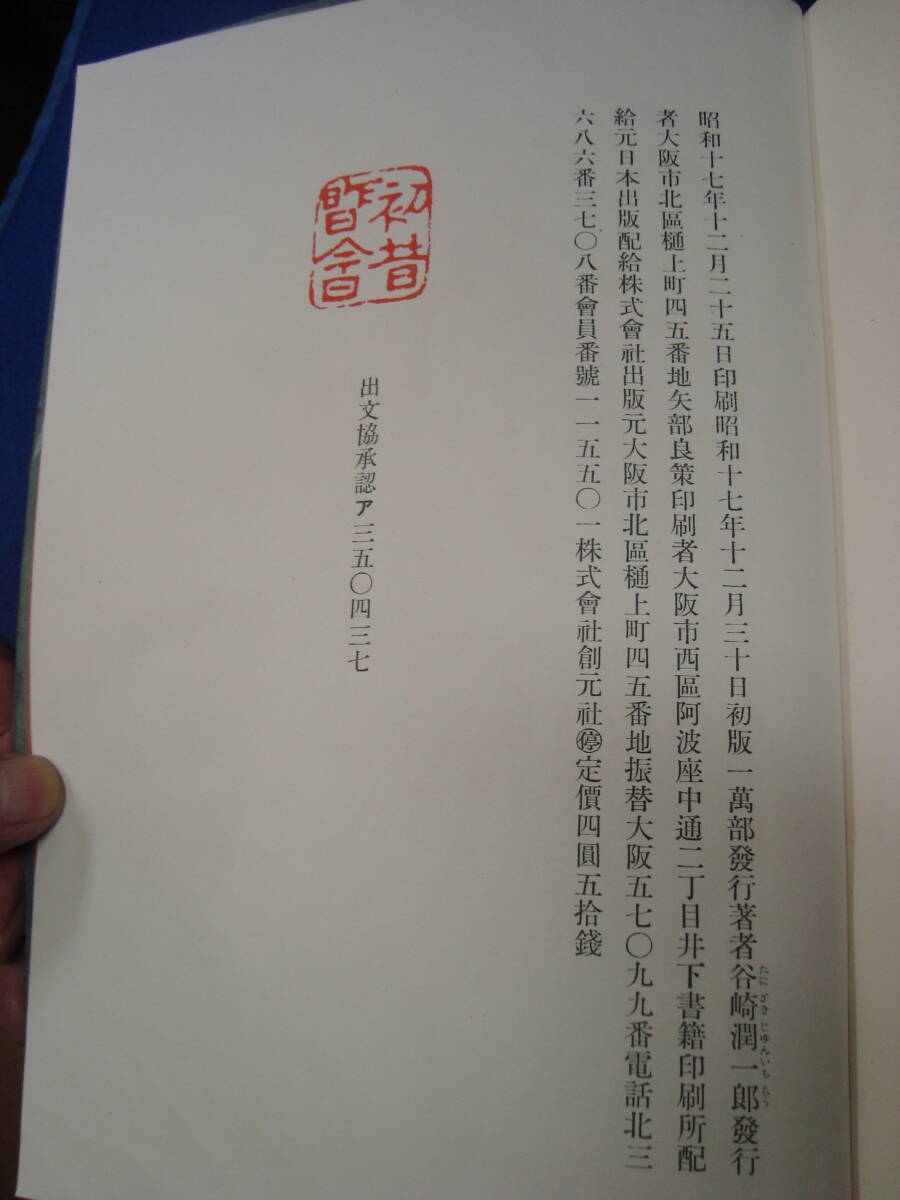 昭和十七年十二月二十五日印刷昭和十七年十二月三十日初版一萬部發行著者谷崎潤一郎發行
たにざきじゆんいちらう
者大阪市北區樋上町四五番地矢部良策印刷者大阪市西區阿波座中通二丁目井下書籍印刷所配
給元日本出版配給株式會社出版元大阪市北區樋上町四五番地振替大阪五七〇九九番電話北三
六八六番三七〇八番會員番號一一五五〇一株式會社創元社㊡定價四圓五拾錢
初昔
昨今
出文協承認ア三五〇四三七